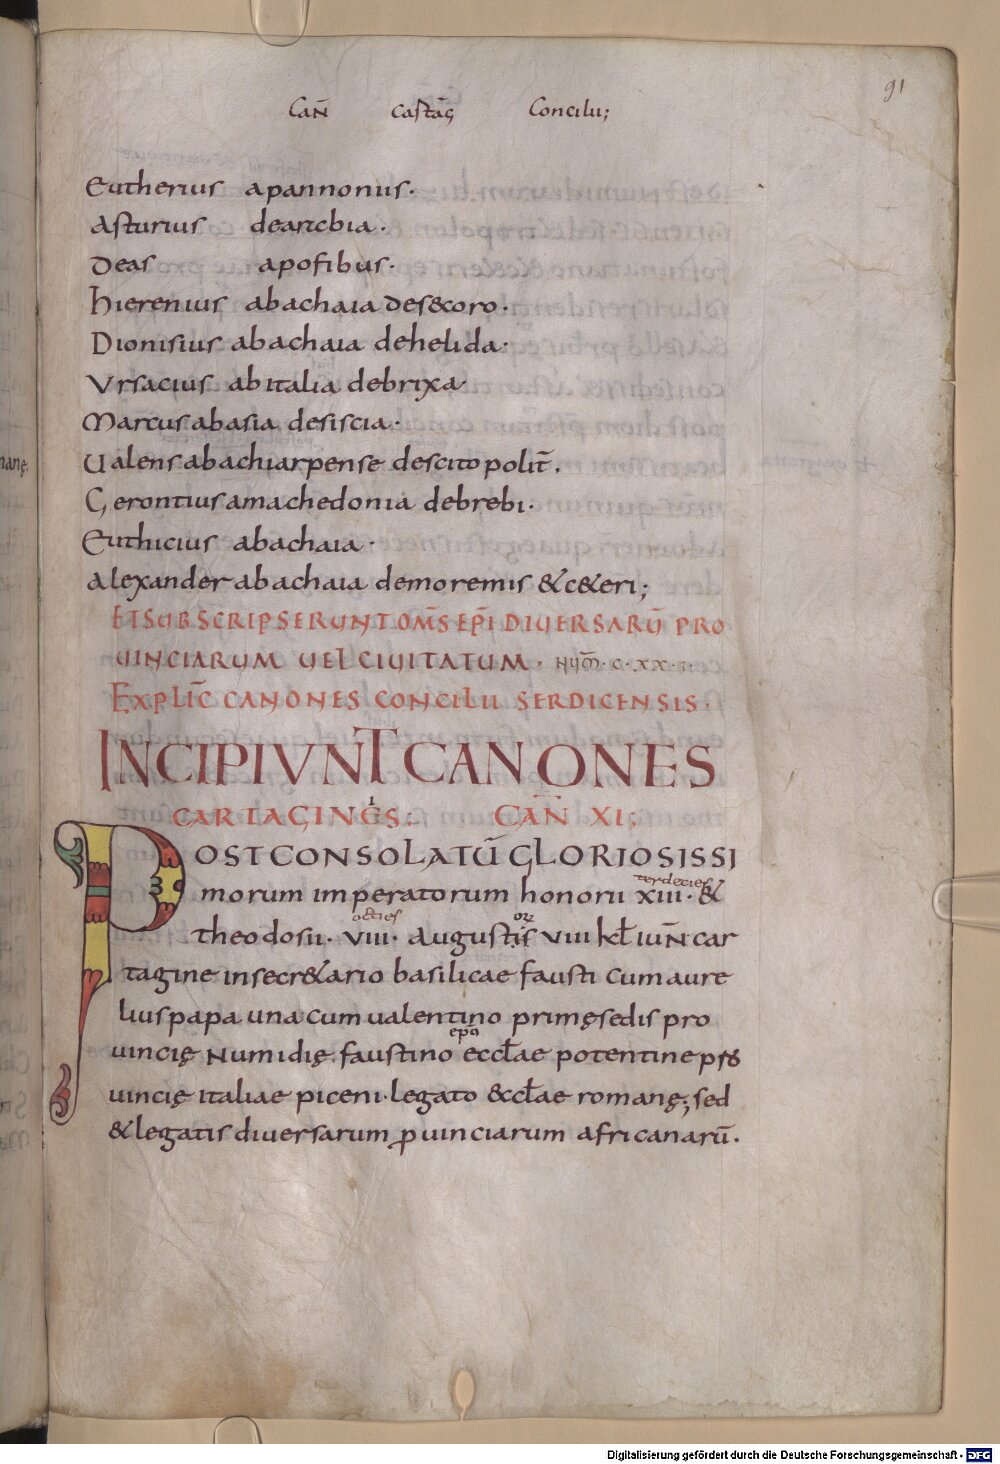 91
Can̄ castāg Concilii;
Eutherius apannonus.
Asturius dearcbia.
Deas apofibus.
hierenius abachaia des&coro.
Dionisius abachaia dehelida.
Vrsacius abitalia debrixa.
Marcus abasia desiscia.
Ualens abachiarpense descitopolit̄.
Gerontius amachedonia debrebi.
Euthicius abachaia.
alexander abachaia demoremis &c&eri;
ETSUBSCRIPSERUNT OM̄S EP̄I DIUERSARŪ PRO
UINCIARUM UEL CIUITATUM. NUM̄. C. XX. I.
EXPLIC̄ CANONES CONCILII SERDICENSIS.
INCIPIUNT CANONES
CARTAGINGS: CAN̄ XI;
POST CONSOLATŪ GLORIOSISSI
terdecies
morum imperatorum honorii xiii. &
octies
theodosii. viii. augustis viii kɫ iuN̄ car
tagine insecr&ario basilicae fausti cum aure
lius papa una cum ualentino primę sedis pro
uincię Numidię. faustino eccɫae potentine pro
uincię italiae piceni. legato &ccɫae romanę; sed
& legatis diuersarum ꝓuinciarum africanarū.
nanę;
Digitalisierung gefördert durch die Deutsche Forschungsgemeinschaft - DFG